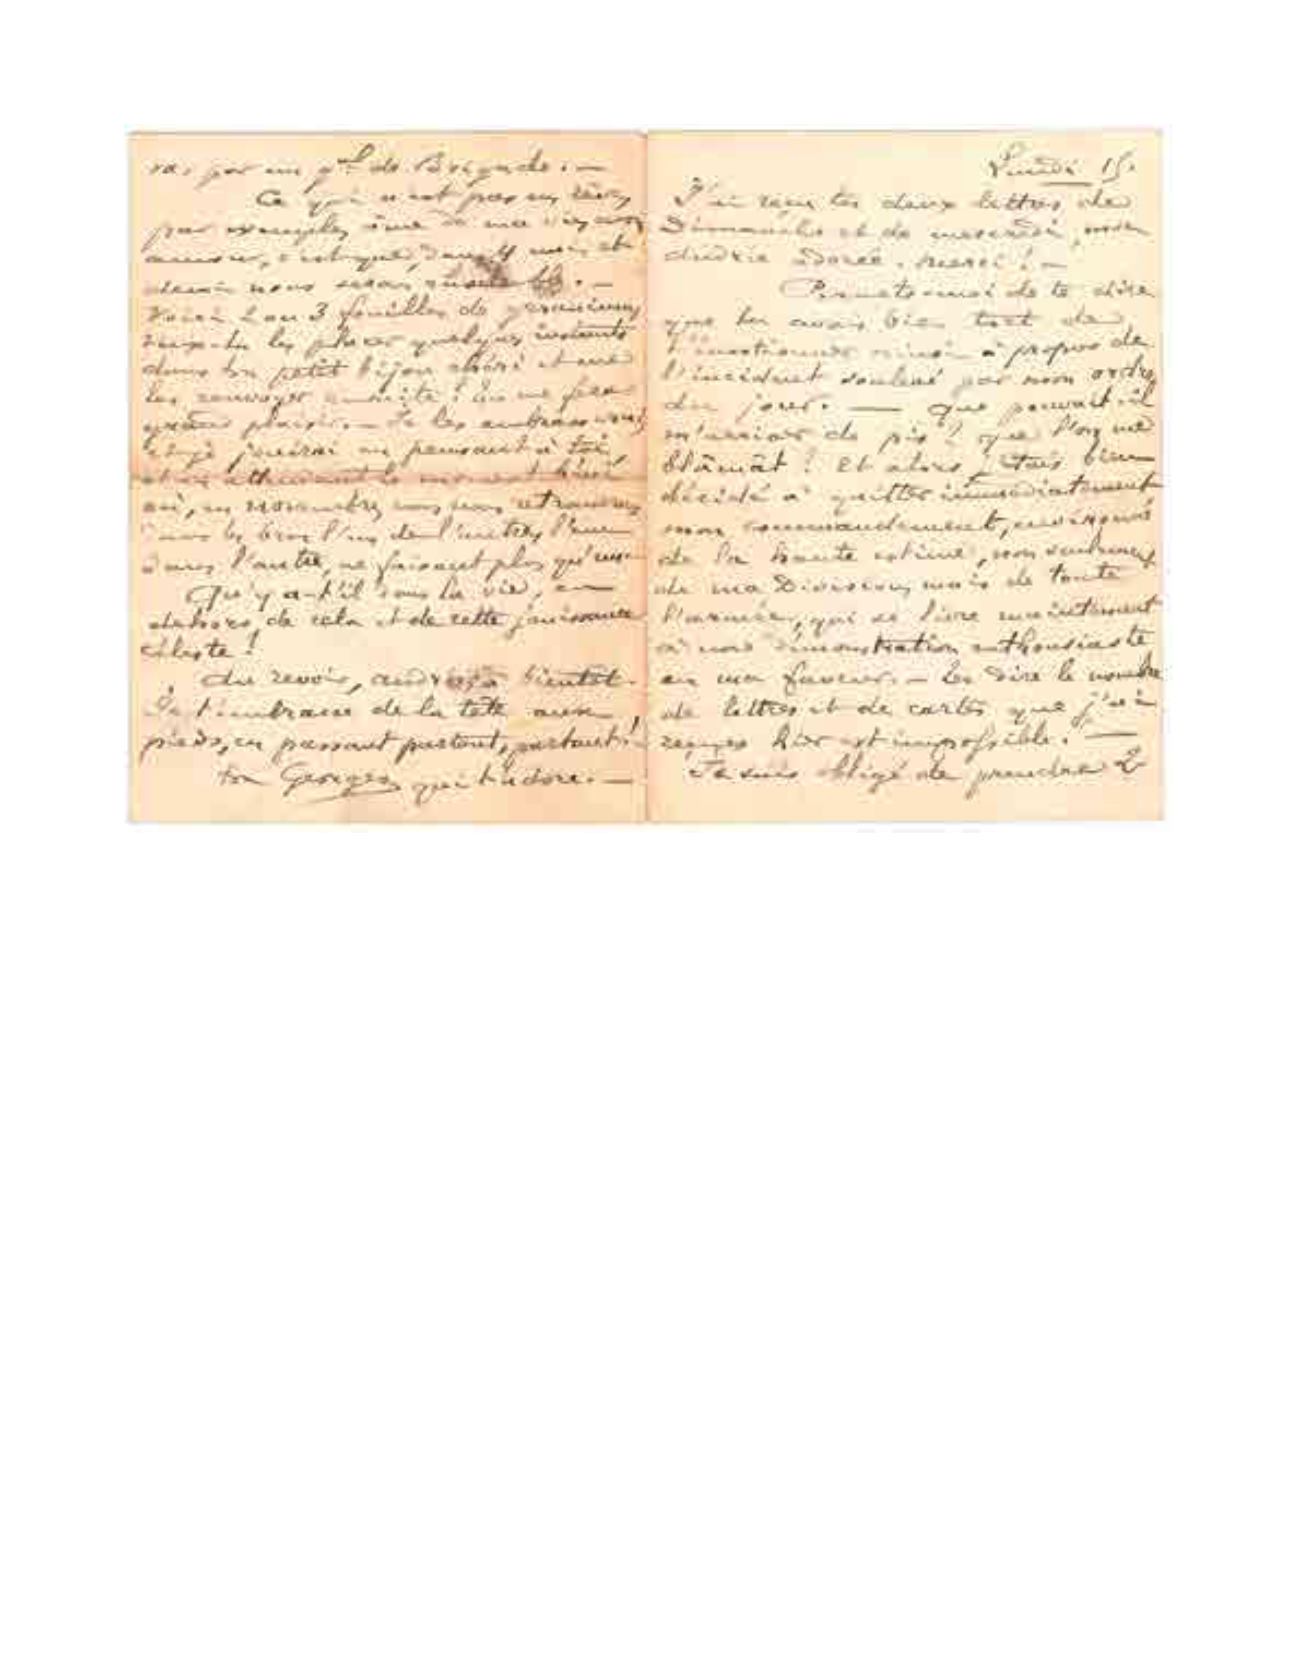 Lundi 15.
J'ai reçu tes deux lettres de
Dimanche et de mercredi, mon
Andrée adorée. Merci! —
Permets-moi de te dire
que tu avais bien tort de
t'émotionner ainsi à propos de
l'incident soulevé par mon ordre
du jour. — Que pouvait-il
m'arriver de pis? que l'on me
blâmât? Et alors j'étais bien
décidé à quitter immédiatement
mon commandement, environné
de la haute estime, non seulement
de ma Division, mais de toute
l'armée, qui se livre maintenant
à une démonstration enthousiaste
en ma faveur. — Te dire le nombre
de lettres et de cartes que j'ai
reçues hier est impossible. —
Je suis obligé de prendre 2
par un gal de Brigade. —
Ce qui n'est pas un rêve,
par exemple, âme de ma vie, mon
amour, c'est que, dans 4 mois et
demi nous serons —
Voici 2 ou 3 feuilles de géranium,
veux-tu les placer quelques instants
dans ton petit bijou chéri et me
les renvoyer ensuite? Tu me feras
grand plaisir. — Je les embrasserai
et je jouirai en pensant à toi,
et en attendant le moment béni
où, en novembre, nous nous retrouverons
dans les bras l'un de l'autre, l'un
dans l'autre, ne faisant plus qu'un
Qu'y a-t-il dans la vie, en
dehors de cela et de cette jouissance
céleste!
Au revoir, à bientôt.
Je t'embrasse de la tête aux
pieds, en passant partout, partout!
ton Georges qui t'adore. —